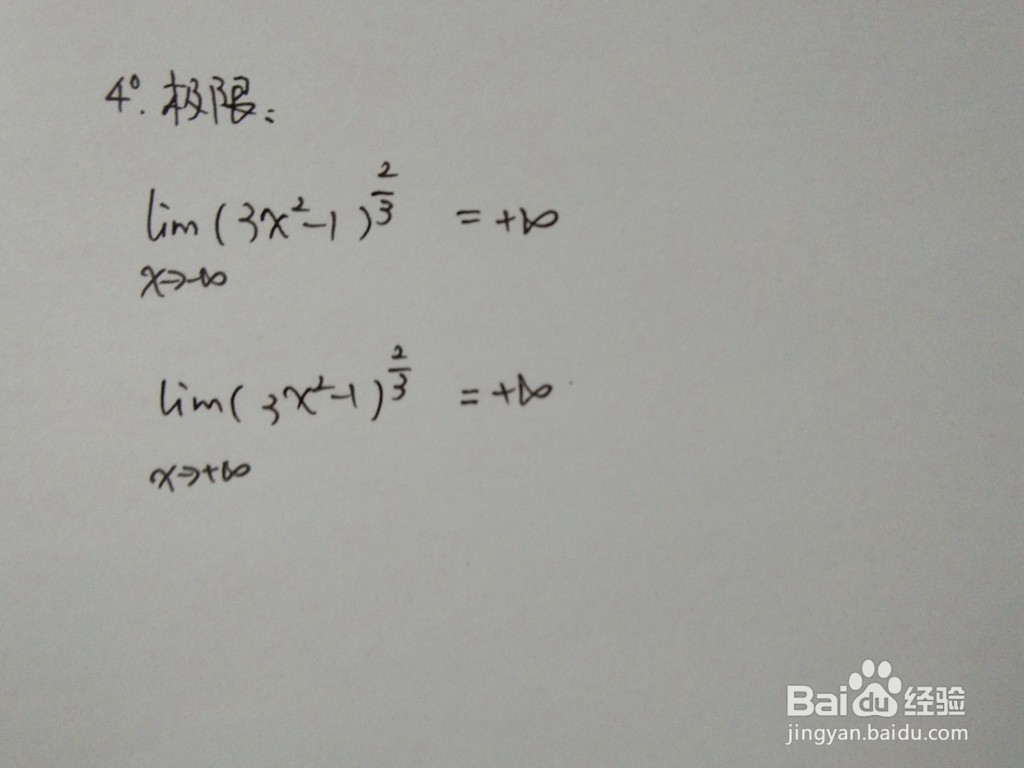 4°. 极限:
lim (3x²-1)^(2/3) = +∞
x→-∞
lim (3x²-1)^(2/3) = +∞
x→+∞
Baidu经验
jingyan.baidu.com